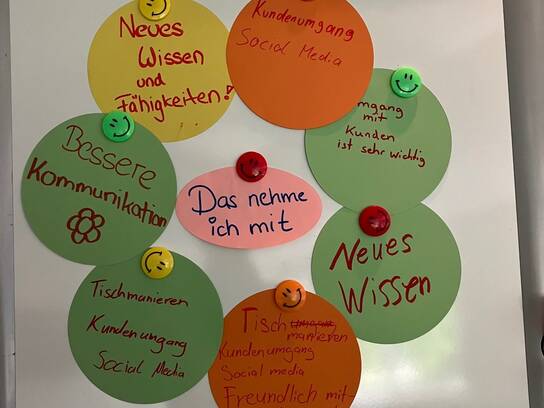 Neues
Wissen
und
Fähigkeiten!
Kundenumgang
Social Media
mgang
mit
Kunden
ist sehr wichtig
Bessere
Kommunikation
Das nehme
ich mit
Neues
Wissen
Tischmanieren
Kundenumgang
Social Media
Tisch
manieren
Kundenumgang
Social media
Freundlich mit-